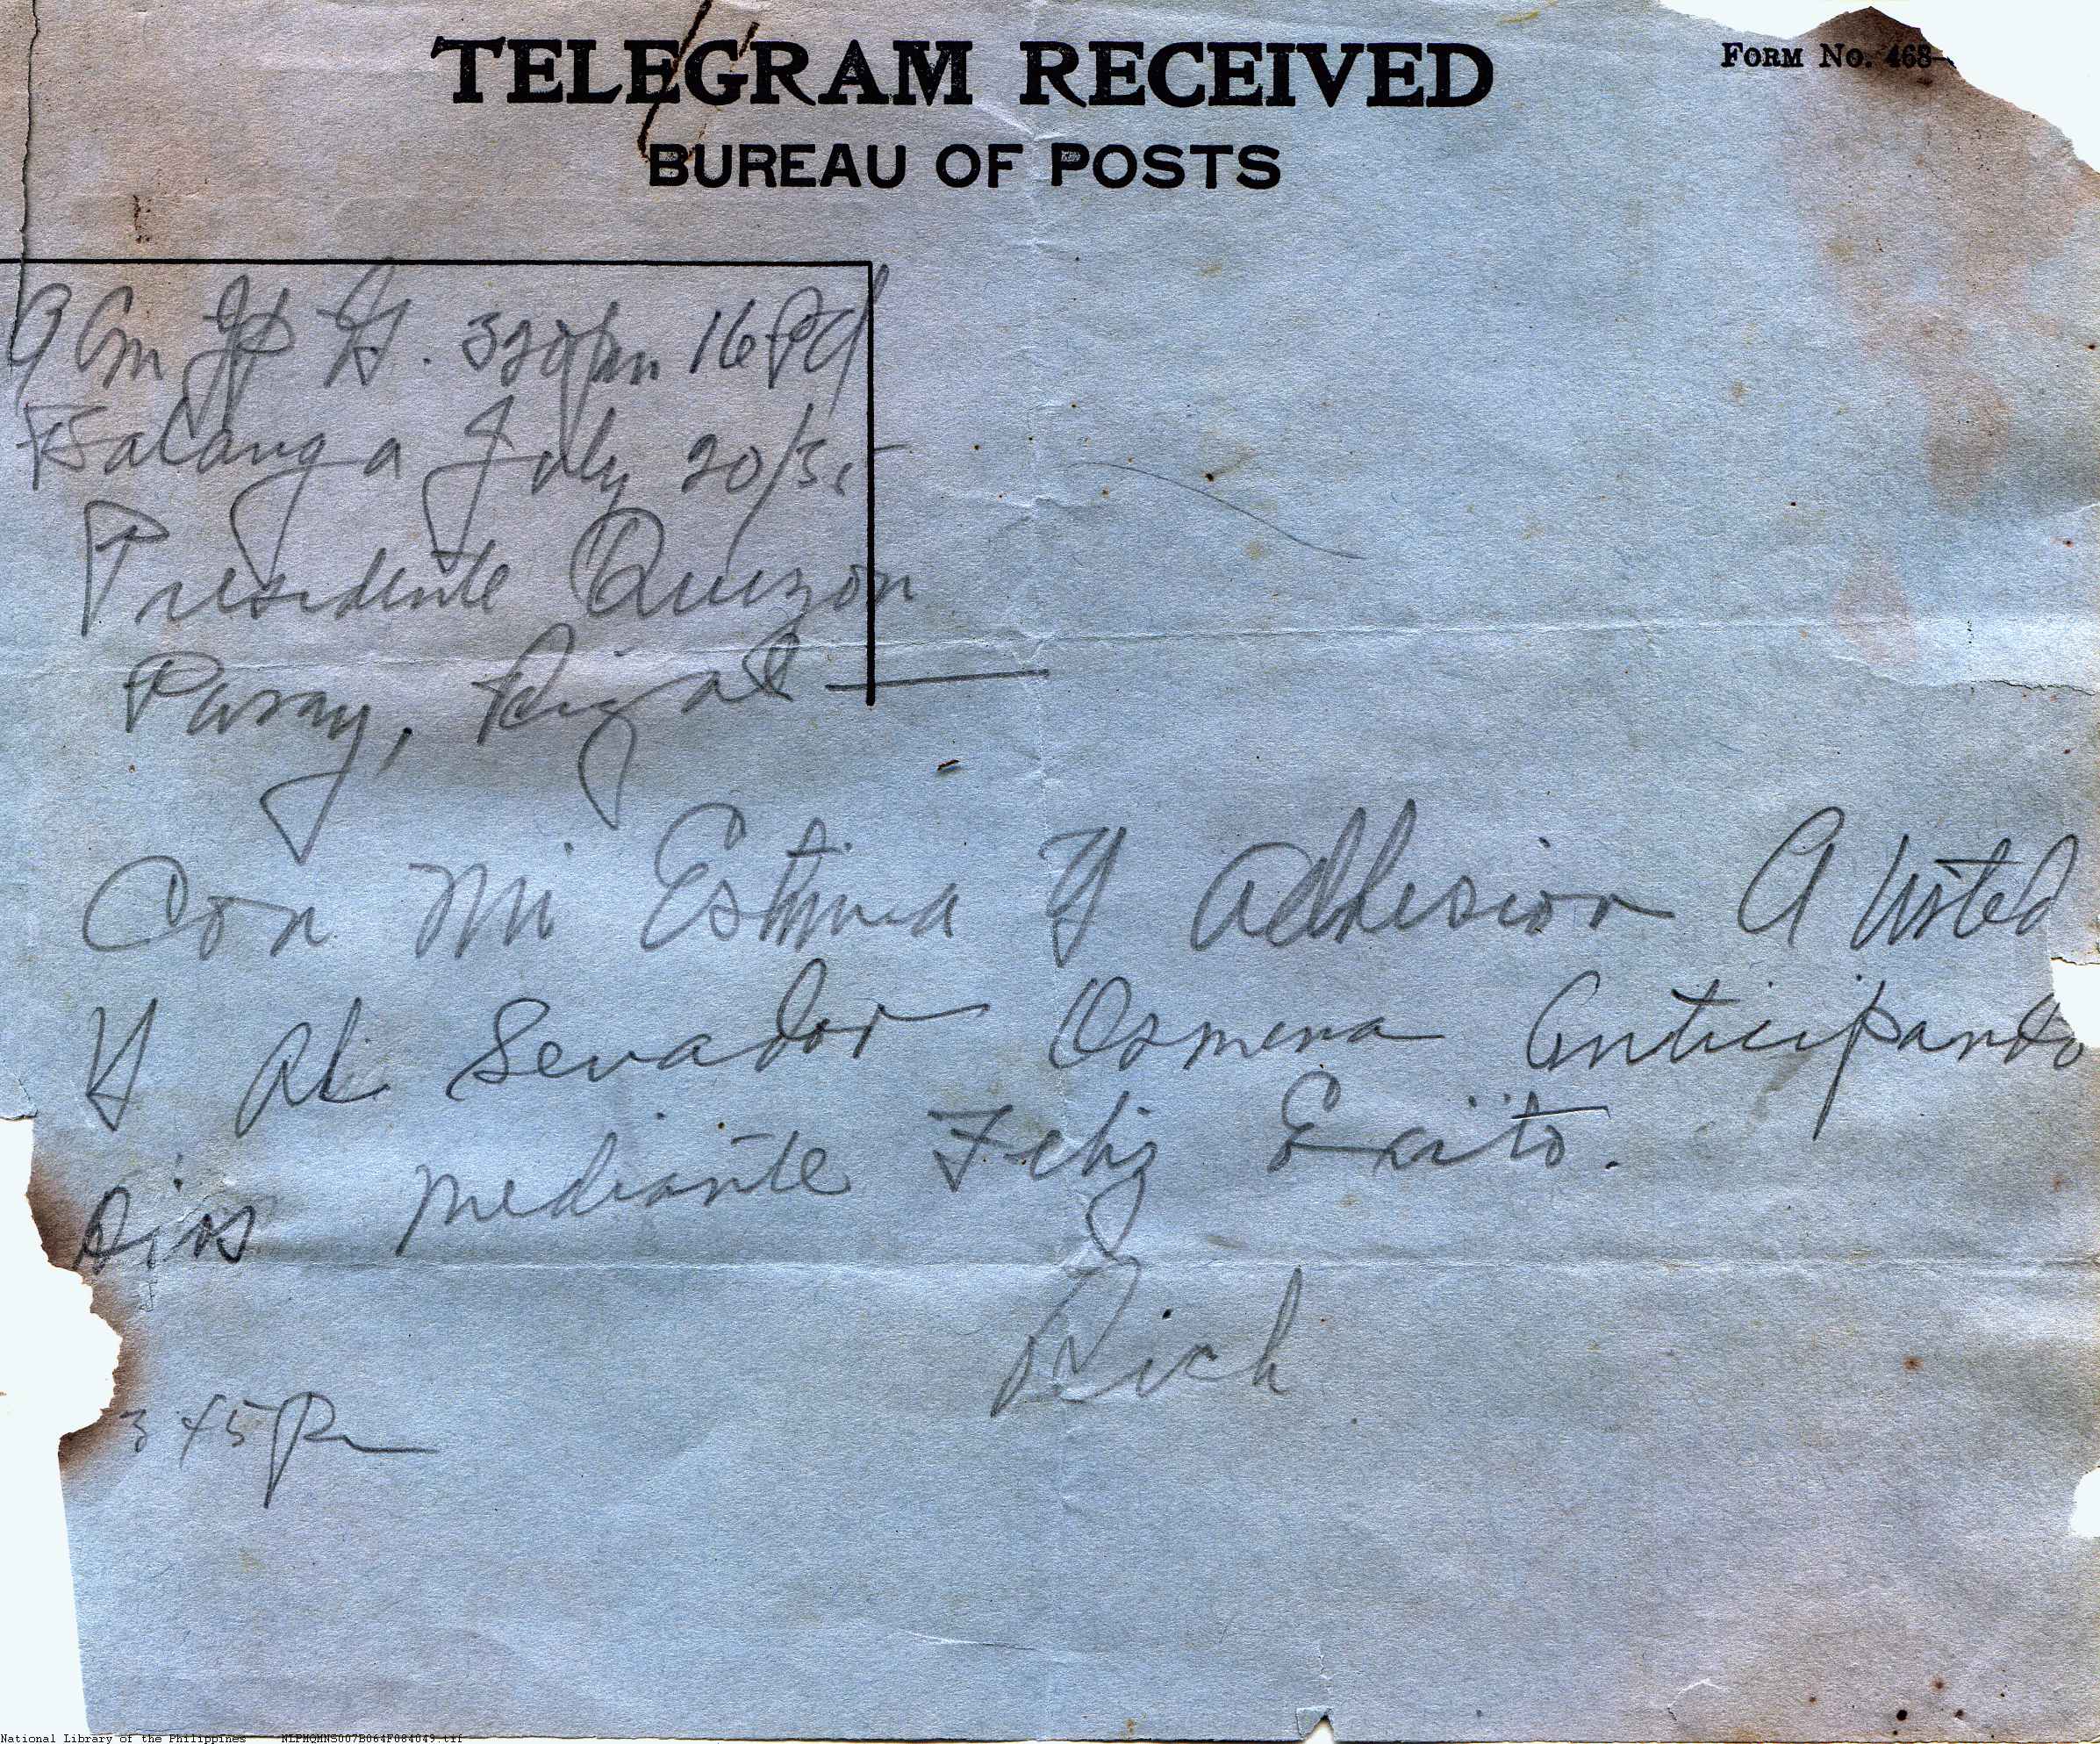 TELEGRAM RECEIVED
FORM No. 468
BUREAU OF POSTS
320pm 16 Pd
Balanga July 20/35
Presidente Quezon
Pasay, Rizal
Con Mi Estima Y Adhesion A Usted
Y Al Senador Osmena Anticipando
Dios mediante Feliz Exito.
Rich
345 Pm
National Library of the Philippines NLPHQMNS007B064F084049.tif